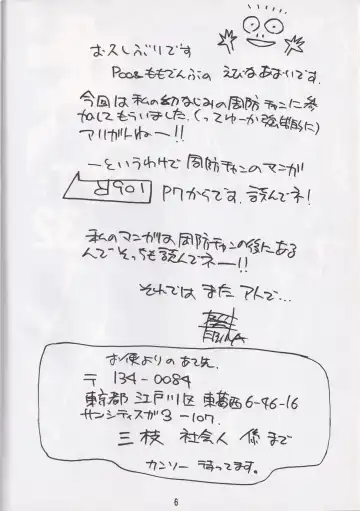 おひさしぶりです
Poo&ももでんぶの えびなあおいです.
今回は私の幼なじみの周防チャンに参
加してもらいました.(ってゆーか強制的に)
アリガトねー!!
ーというわけで周防チャンのマンガ
P7からです. 読んでネ!
私のマンガは周防チャンの後にある
んでそっちも読んでネー!!
それでは また アトで…
EBINA
お便よりのあて先.
〒 134-0084
東京都 江戸川区 東葛西6-46-16
サンシティスガ3-107.
三枝 社会人 係まで
カンソー まってます.
6